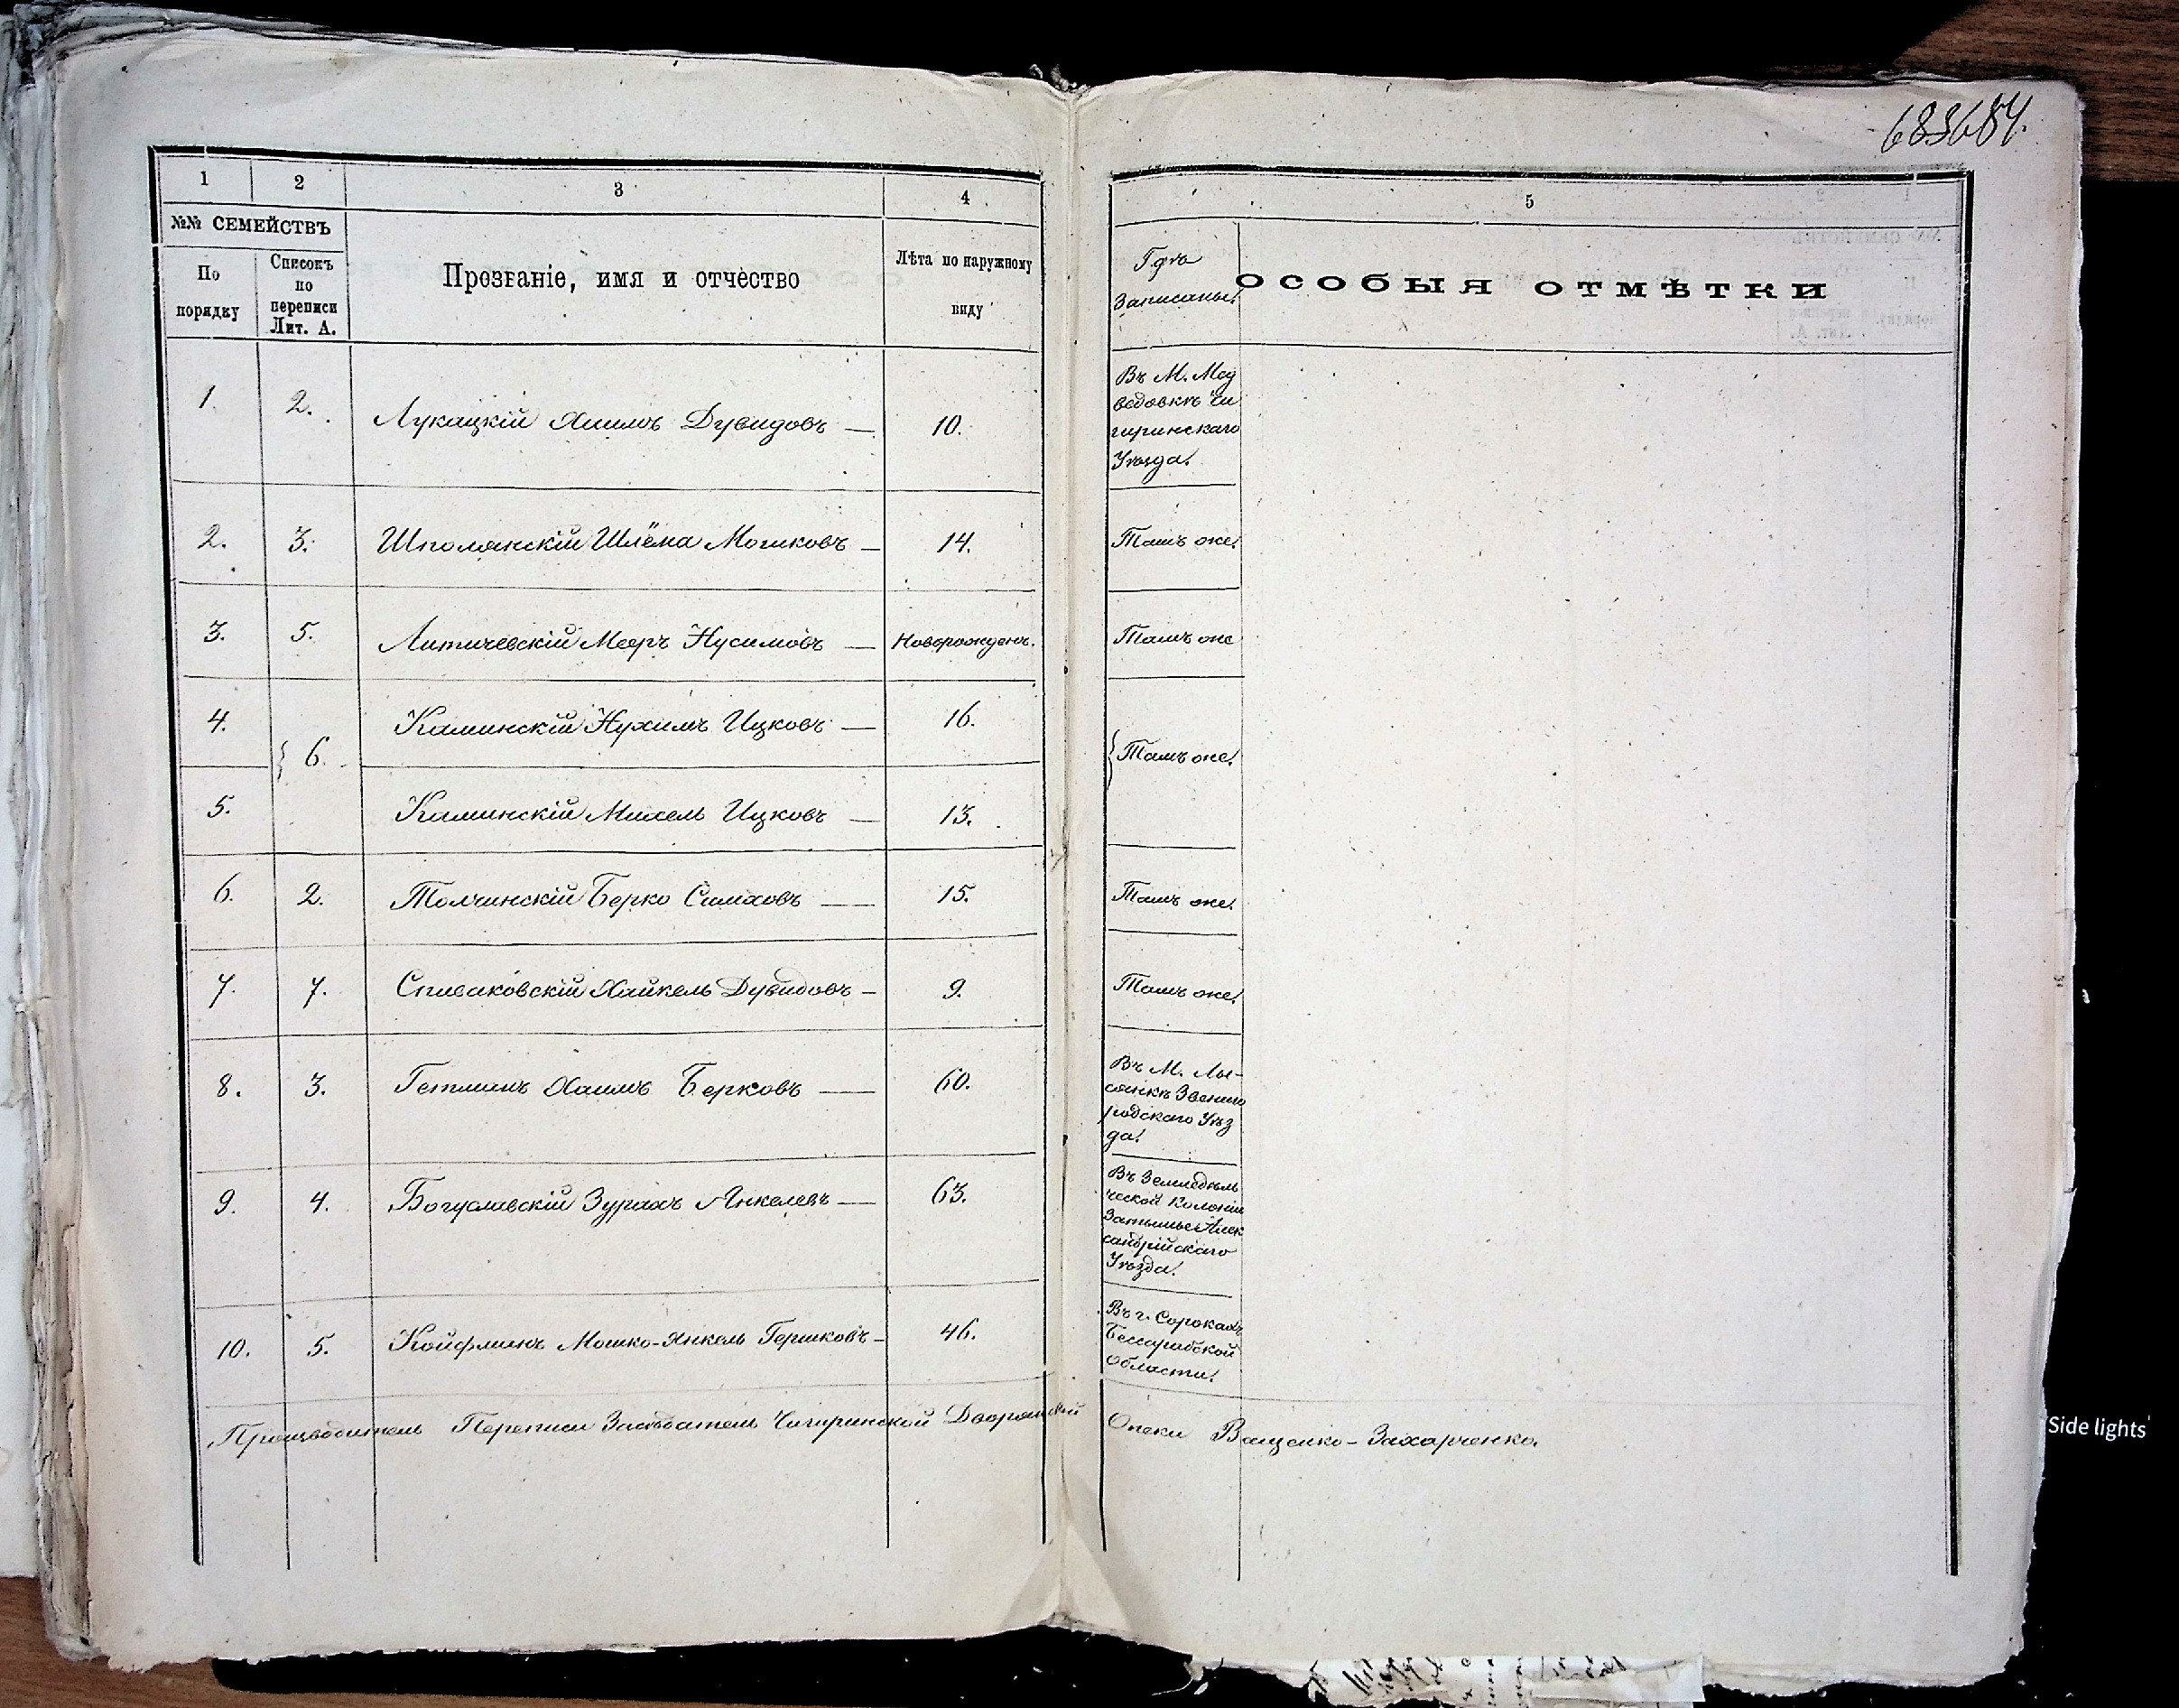 683684.
1 2 3 4 5
№№ СЕМЕЙСТВЪ
По порядку
Списокъ по переписи Лит. А.
Прозваніе, имя и отчество
Лѣта по наружному виду
Гдѣ Записаны.
ОСОБЫЯ ОТМѢТКИ
1. 2. Лукацкій Хаимъ Дувидовъ — 10.
Въ М. Мед
ведовкѣ Чи
гиринскаго
Уѣзда.
2. 3. Шполянскій Шлёма Мошковъ — 14. Тамъ же.
3. 5. Литичевскій Мееръ Нусимовъ — Новорожденъ. Тамъ же
4. Каминскій Нухимъ Ицковъ — 16.
6. Тамъ же.
5. Каминскій Михель Ицковъ — 13.
6. 2. Толчинскій Берко Симховъ — 15. Тамъ же.
7. 7. Спиваковскій Хайкель Дувидовъ — 9. Тамъ же.
8. 3. Гетманъ Хаимъ Берковъ — 60.
Въ М. Лы-
сянкѣ Звениго
родскаго Уѣз
да.
9. 4. Богуславскій Зурахъ Янкелевъ — 63.
Въ Земледѣль
ческой Колоніи
Затишье Алек
сандрійскаго
Уѣзда.
10. 5. Койфманъ Мошко-Янкель Гершковъ — 46.
Въ г. Сорокахъ
Бессарабской
Области.
Производитель Переписи Засѣдатель Чигиринской Дворянской Опеки Ващенко-Захарченко.
Side lights